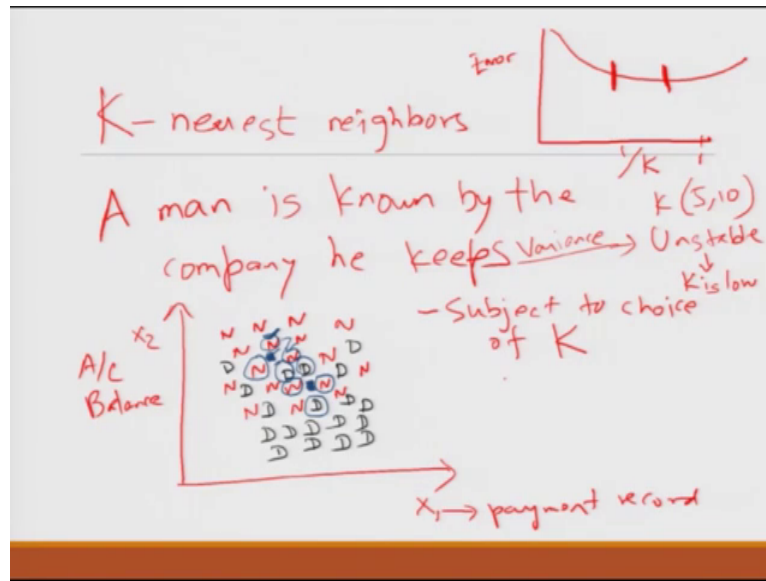 Error
K-nearest neighbors
1/K
1
A man is known by the
K (5,10)
company he keeps
Variance → Unstable
↓
K is low
- Subject to choice
of K
X2
A/C
Balance
N N N N
N N N D
D N D D N D N
N D N N N N
N D N D D D
D D D D D
D D D
X1 → payment record